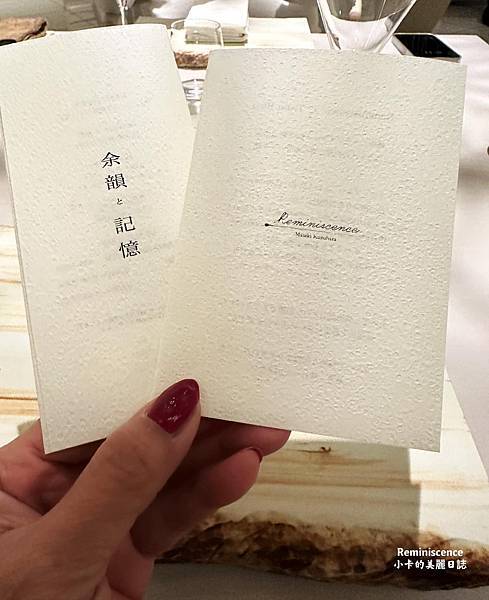 余韻と記憶
Reminiscence
Masaki Kuzuhara
Reminiscence
小卡的美麗日誌